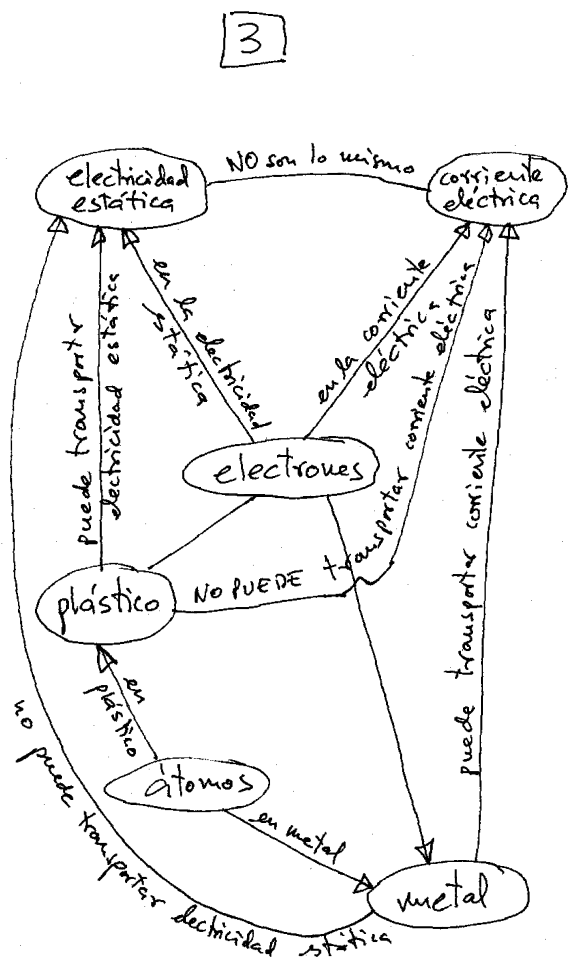 3
electricidad
estática
NO son lo mismo
corriente
eléctrica
puede transportar
electricidad estática
en la electricidad
estática
en la corriente
eléctrica
NO PUEDE transportar corriente eléctrica
puede transportar corriente eléctrica
electrones
plástico
en
plástico
átomos
en metal
metal
no puede transportar electricidad estática